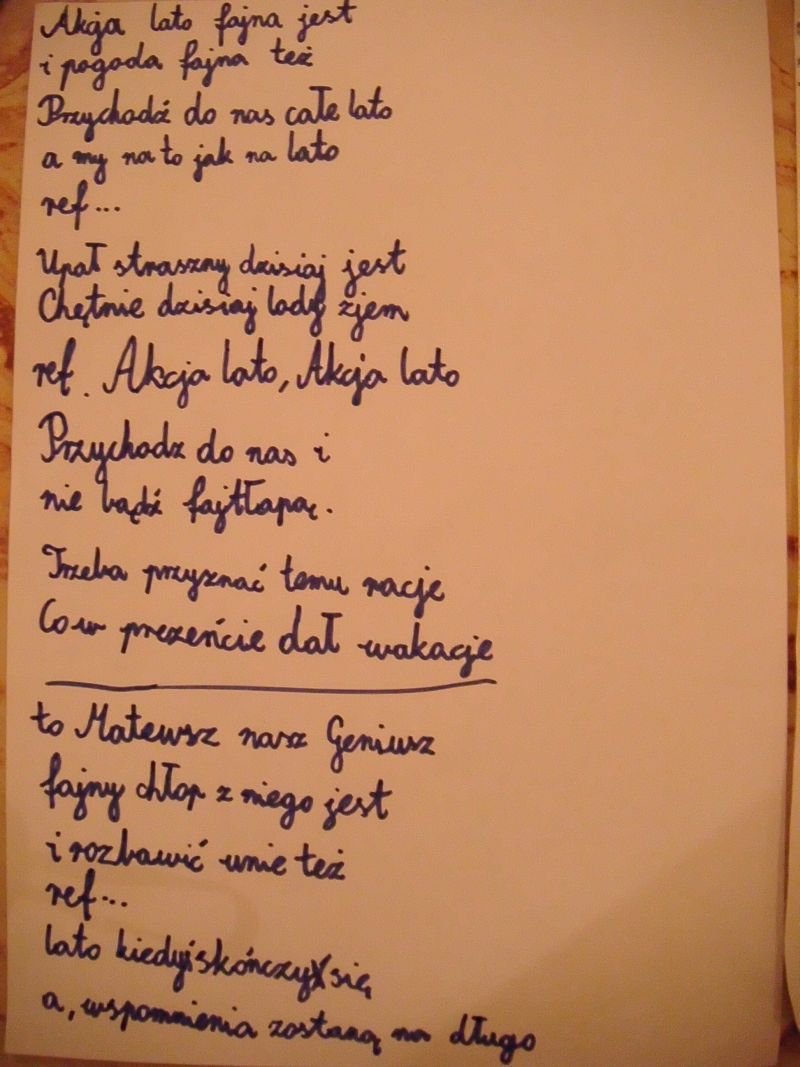 Akcja lato fajna jest
i pogoda fajna też
Przychodź do nas całe lato
a my na to jak na lato
ref...
Upał straszny dzisiaj jest
Chętnie dzisiaj lody zjem
ref. Akcja lato, Akcja lato
Przychodz do nas i
nie bądź fajtłapą.
Trzeba przyznać temu racje
Co w prezeńcie dał wakacje
to Mateusz nasz Geniusz
fajny chłop z niego jest
i rozbawić umie też
ref...
lato kiedyiskończy się
a, wspomnienia zostaną na długo